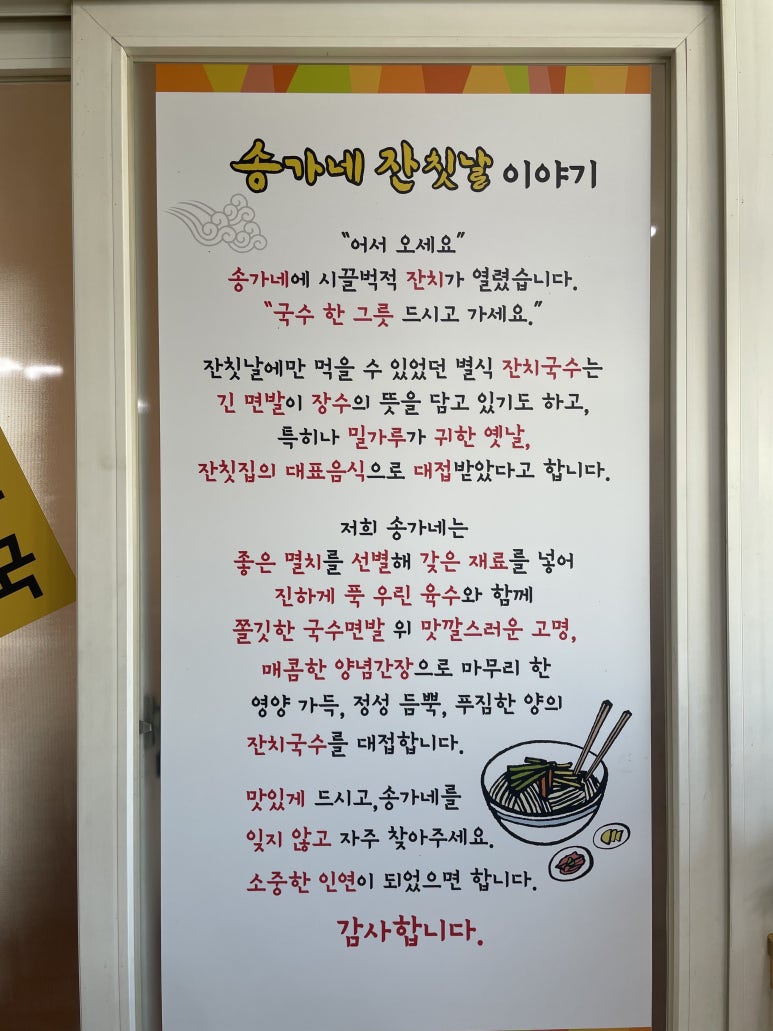 송가네 잔칫날 이야기
“어서 오세요”
송가네에 시끌벅적 잔치가 열렸습니다.
“국수 한 그릇 드시고 가세요.”
잔칫날에만 먹을 수 있었던 별식 잔치국수는
긴 면발이 장수의 뜻을 담고 있기도 하고,
특히나 밀가루가 귀한 옛날,
잔칫집의 대표음식으로 대접받았다고 합니다.
저희 송가네는
좋은 멸치를 선별해 갖은 재료를 넣어
진하게 푹 우린 육수와 함께
쫄깃한 국수면발 위 맛깔스러운 고명,
매콤한 양념간장으로 마무리 한
영양 가득, 정성 듬뿍, 푸짐한 양의
잔치국수를 대접합니다.
맛있게 드시고,송가네를
잊지 않고 자주 찾아주세요.
소중한 인연이 되었으면 합니다.
감사합니다.
국